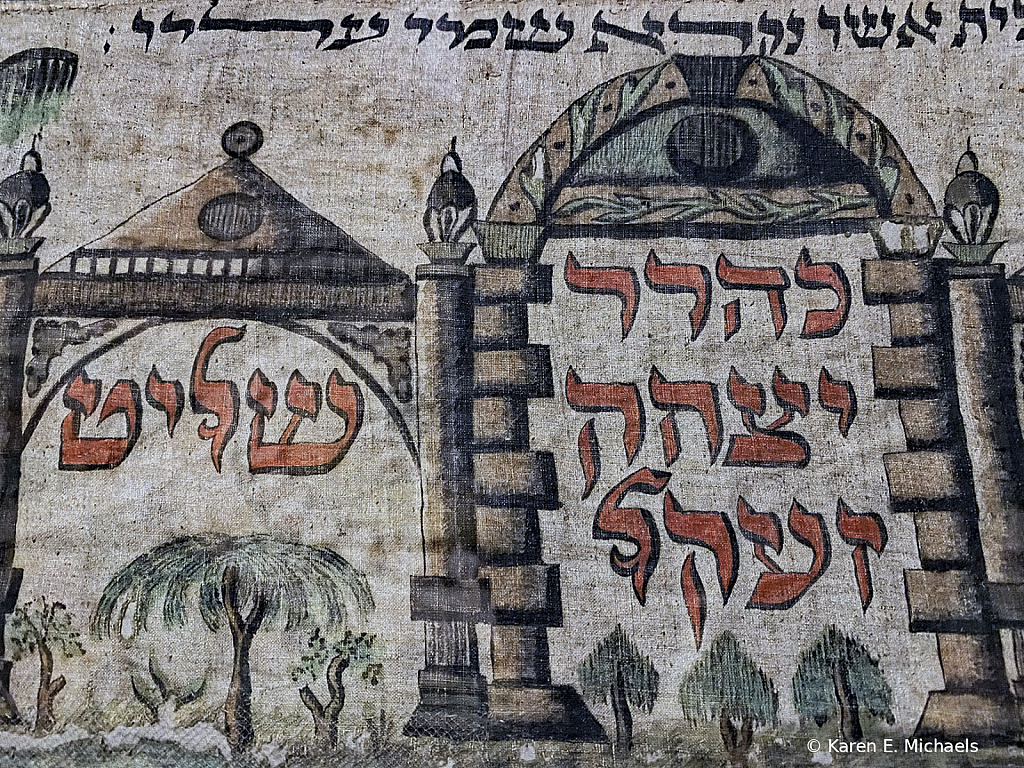 ית אשר נקרא שמי עליו :
כהרר
יצחק
זעקל
שליט
© Karen E. Michaels